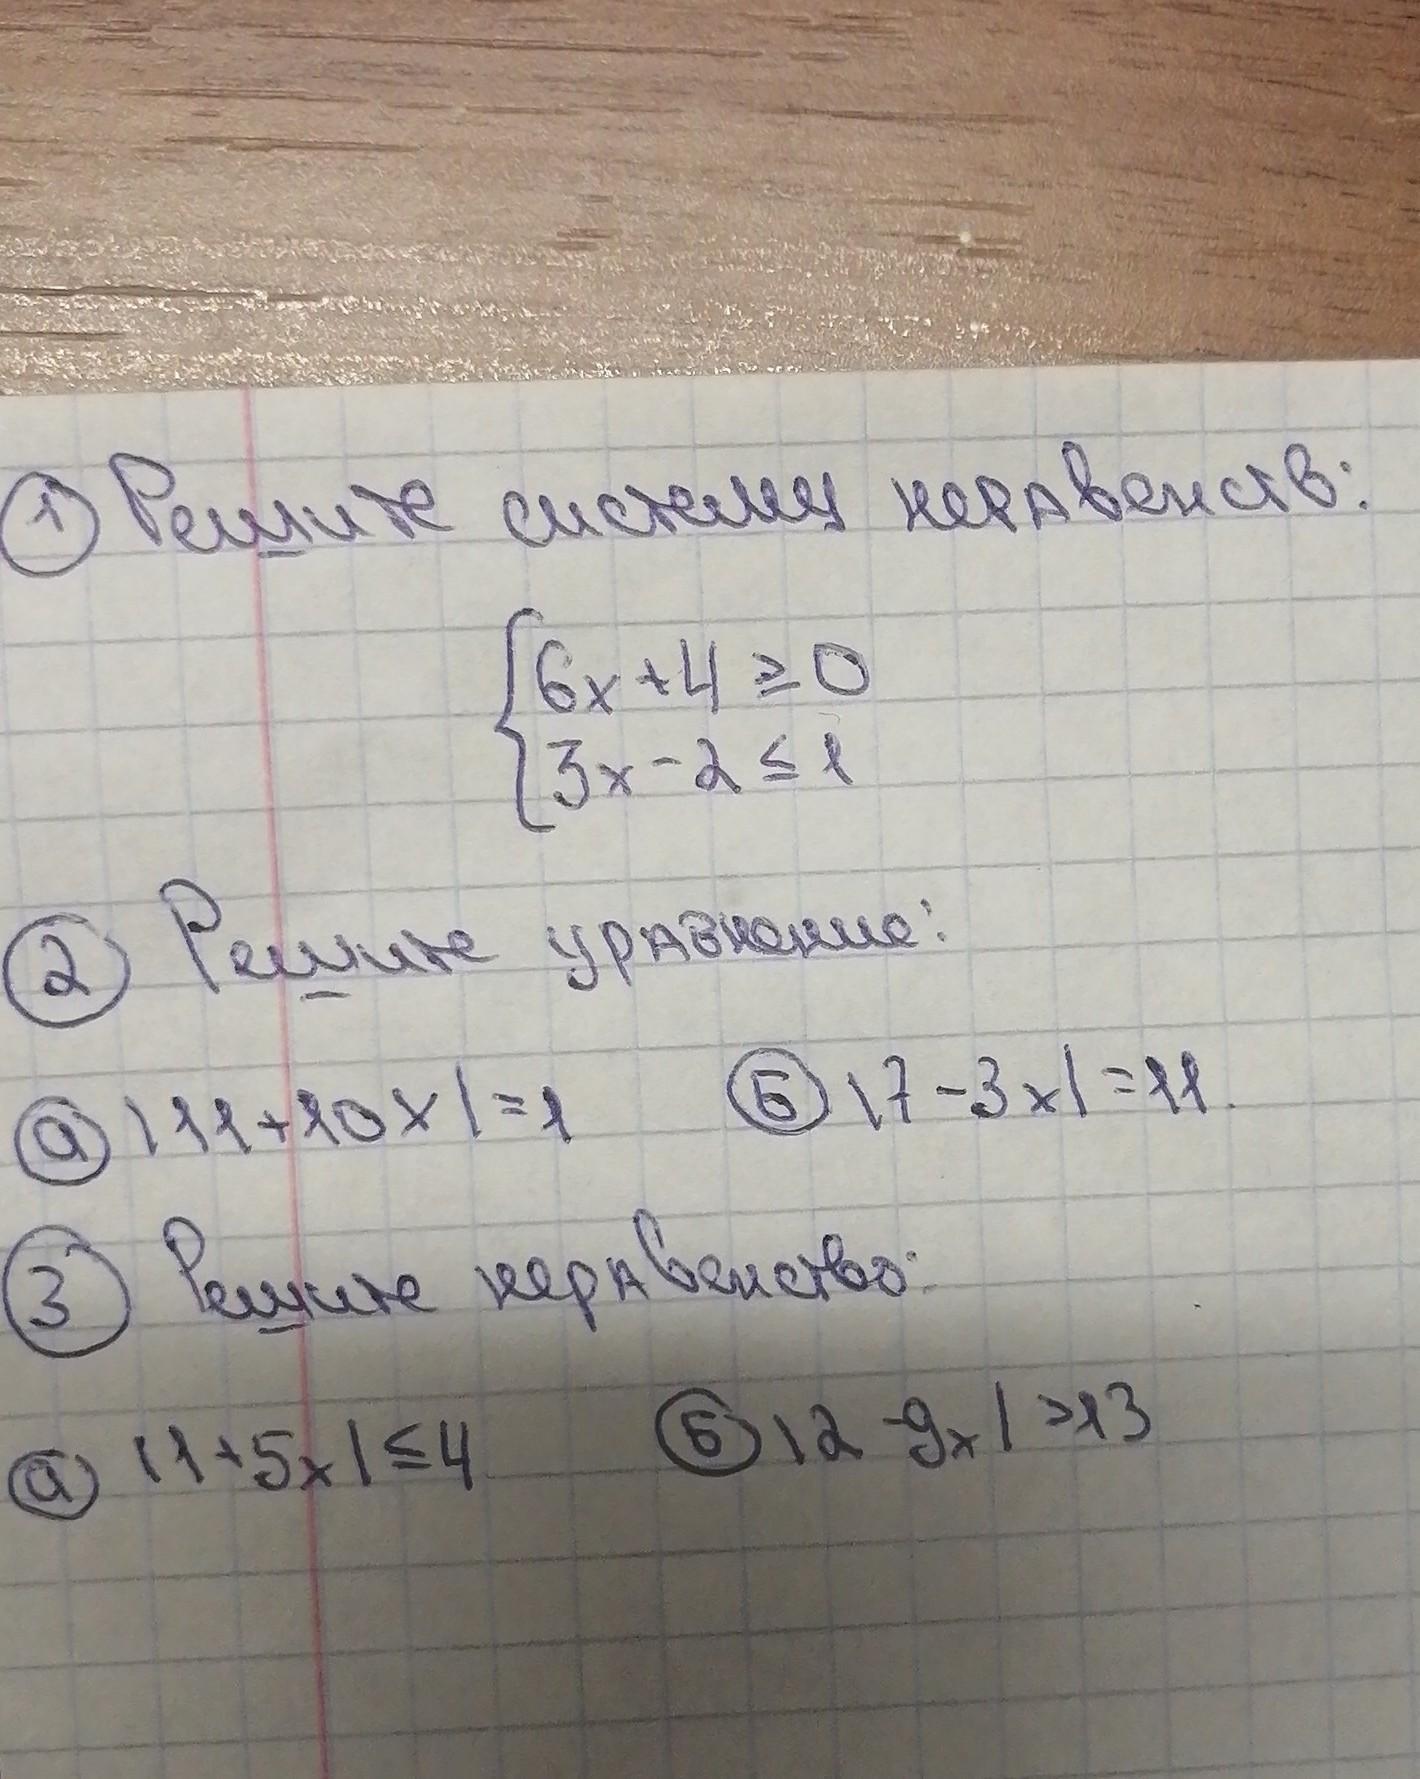 1 Решите систему неравенств:
{6x+4 ≥ 0
3x-2 ≤ 1
2 Решите уравнение:
а |11+10x|=1 б |7-3x|=11.
3 Решите неравенство:
а |1+5x|≤4 б |2-9x|>13